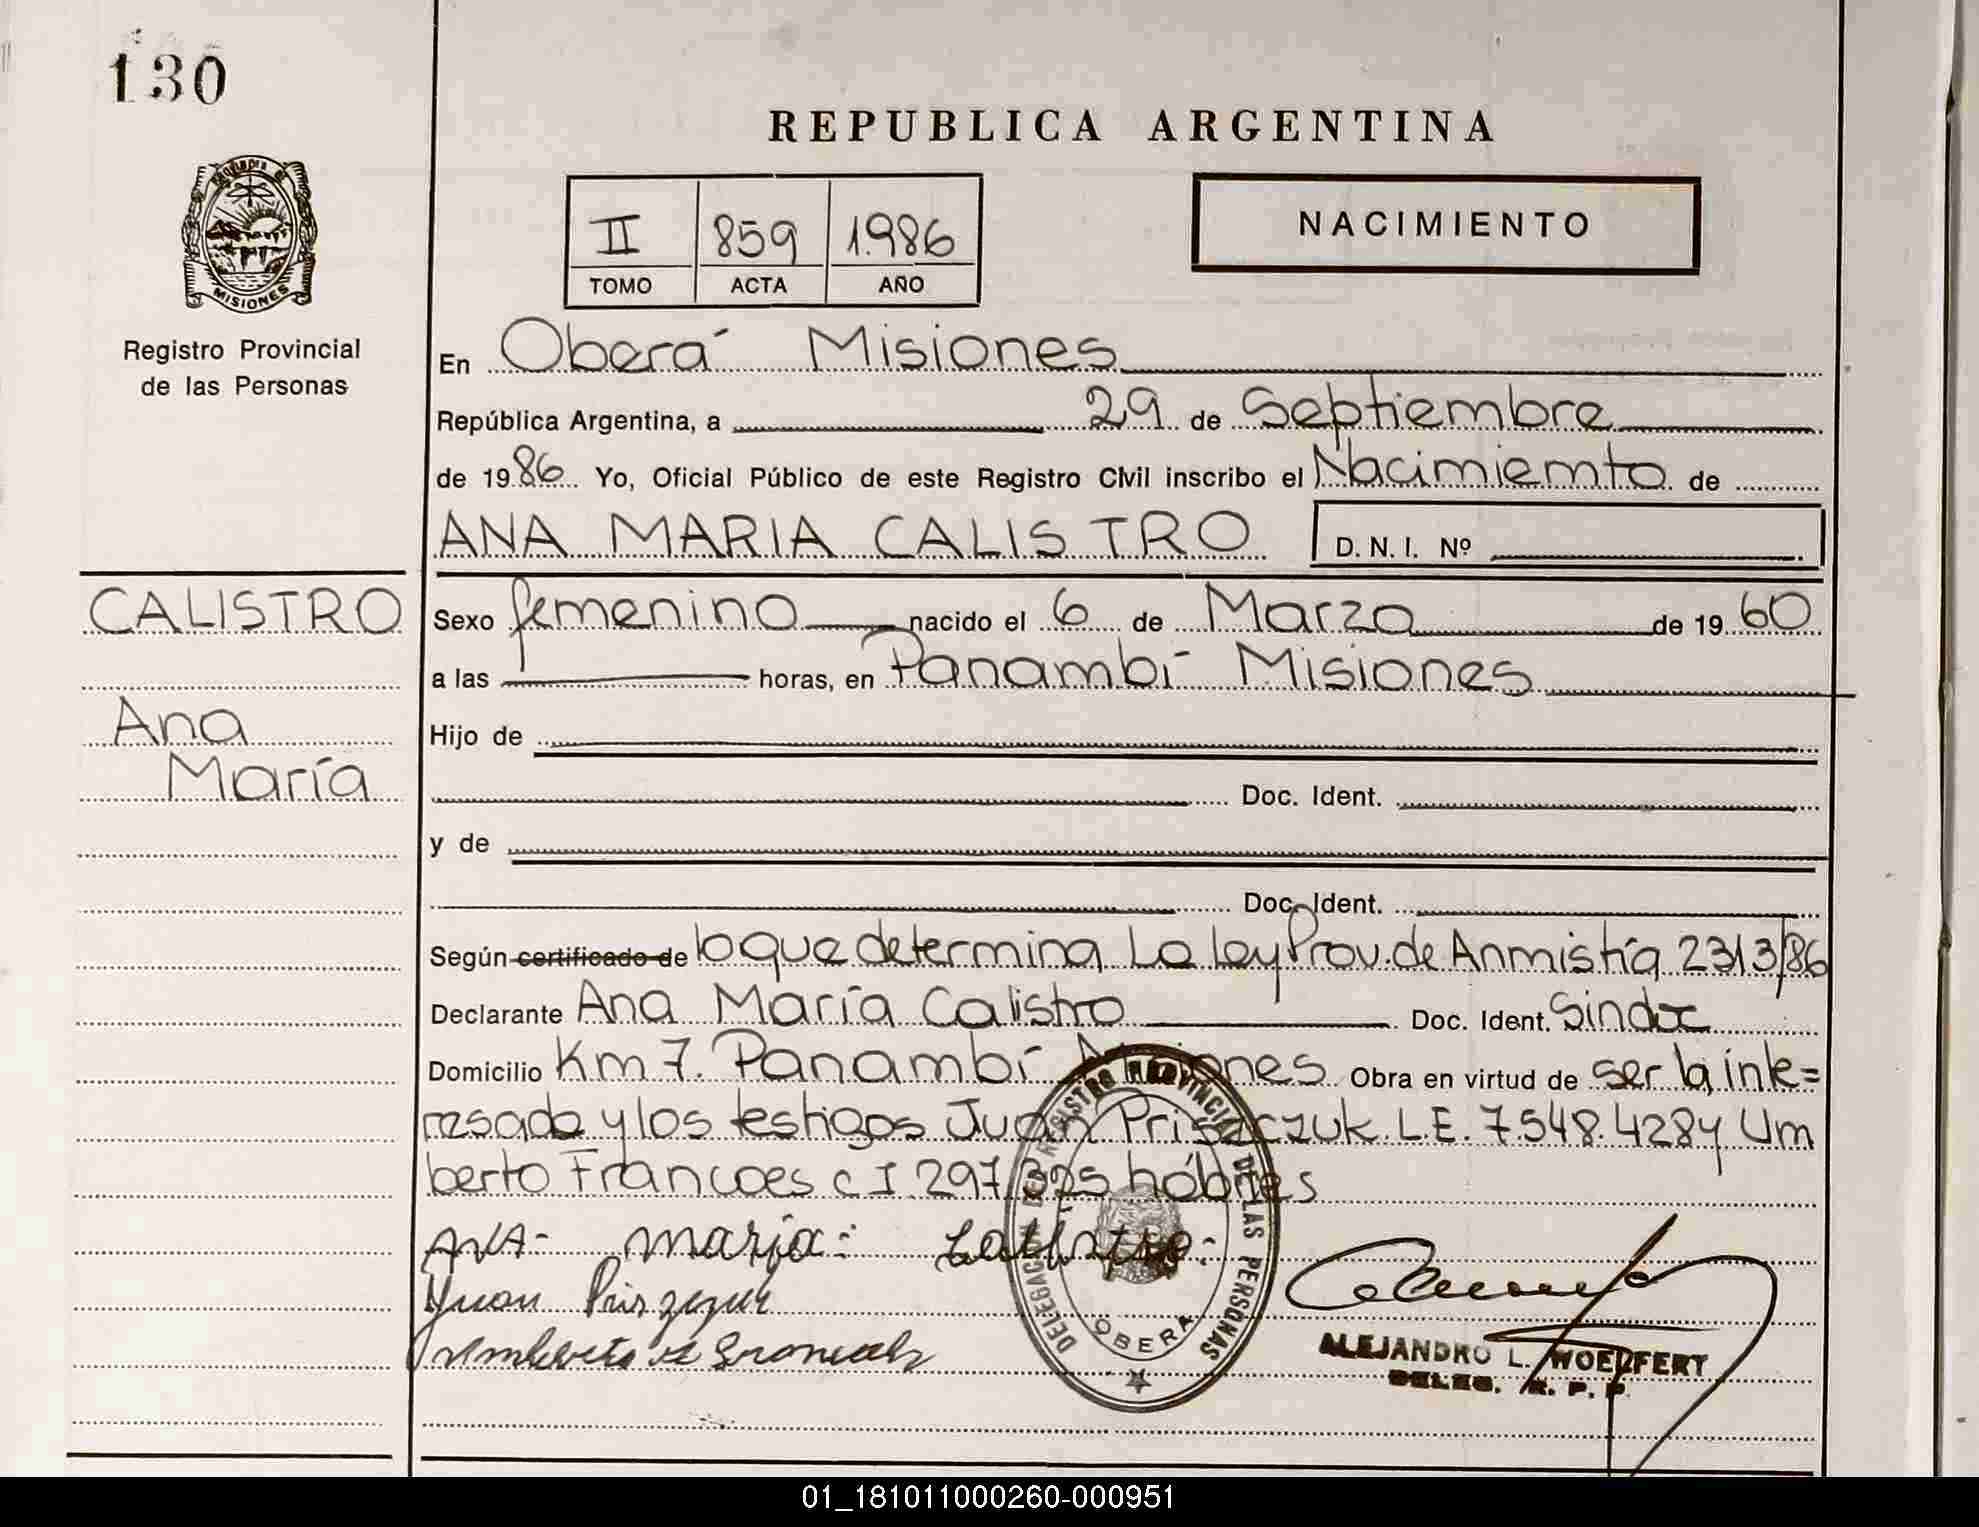 130
REPUBLICA ARGENTINA
II 859 1.986
TOMO ACTA AÑO
NACIMIENTO
MISIONES
Registro Provincial
de las Personas
En Oberá Misiones
República Argentina, a 29 de Septiembre
de 1986 Yo, Oficial Público de este Registro Civil inscribo el Nacimiemto de
ANA MARIA CALISTRO D.N.I. Nº
CALISTRO
Ana
María
Sexo femenino nacido el 6 de Marzo de 1960
a las horas, en Panambí Misiones
Hijo de
Doc. Ident.
y de
Doc. Ident.
Según certificado de lo que determina La Ley Prov. de Anmistía 2313/86
Declarante Ana María Calistro Doc. Ident. Sindoc
Domicilio Km 7. Panambí Misiones Obra en virtud de ser la inte=
resada y los testigos Juan L.E. 7.548.428 y Um
berto Francoes C I 297.325 hábiles
ANA- maria: Calistro-
Juan
DELEGACION DEL REGISTRO PROVINCIAL DE LAS PERSONAS
OBERA
ALEJANDRO L. WOEPFERT
DELEG. R. P. P.
01_181011000260-000951